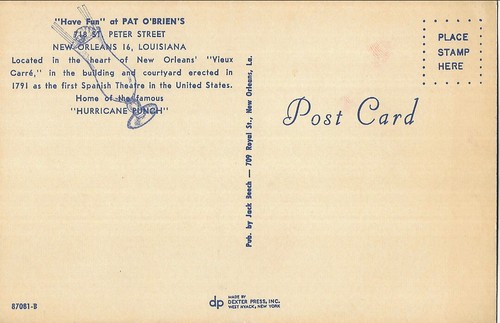 "Have Fun" at PAT O'BRIEN'S
718 ST. PETER STREET
NEW ORLEANS 16, LOUISIANA
Located in the heart of New Orleans' "Vieux
Carré," in the building and courtyard erected in
1791 as the first Spanish Theatre in the United States.
Home of the famous
"HURRICANE PUNCH"
Pub. by Jack Beech — 709 Royal St., New Orleans, La.
PLACE
STAMP
HERE
Post Card
87081-B
dp
MADE BY
DEXTER PRESS, INC.
WEST NYACK, NEW YORK